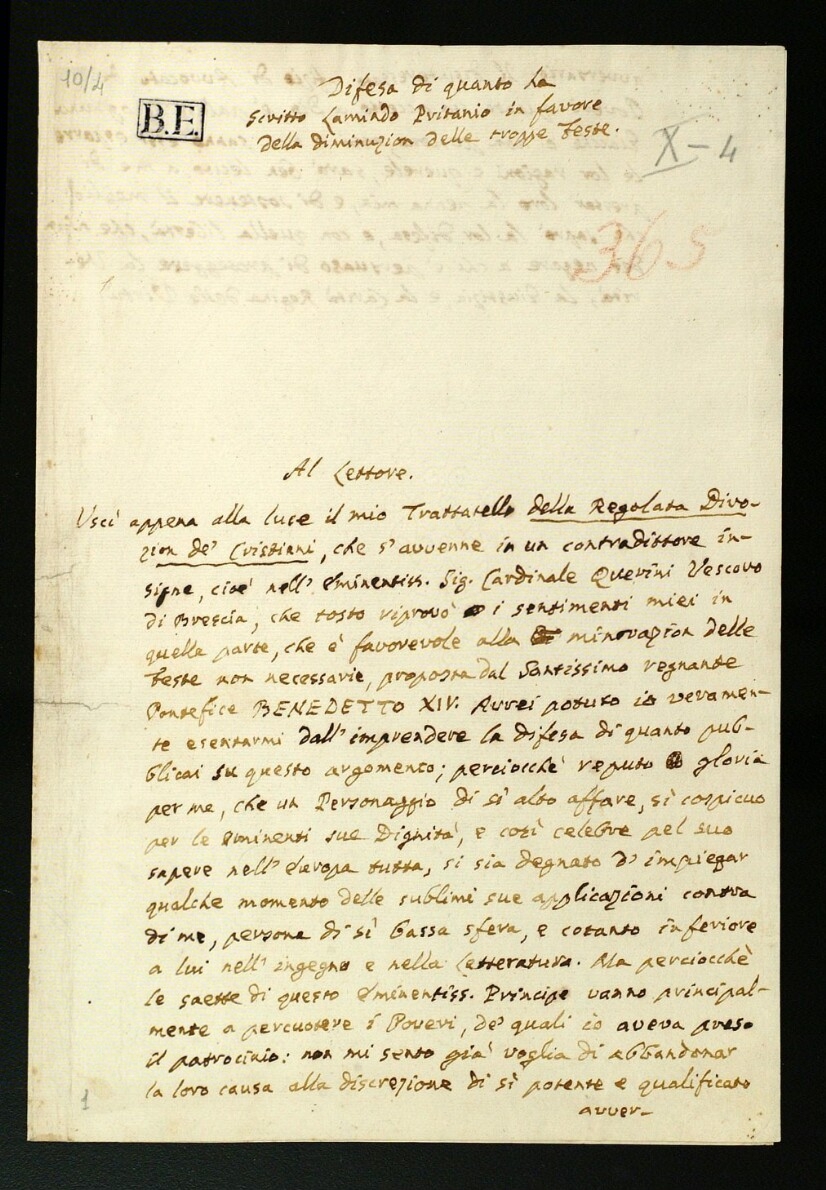 10/4
B.E.
X-4
365
Difesa di quanto ha
scritto Lamindo Pritanio in favore
della diminuzion delle troppe Feste.
Al Lettore.
Uscì appena alla luce il mio Trattatello della Regolata Divo-
zion de' Cristiani, che s'avvenne in un contradittore in-
signe, cioè nell'Eminentiss. Sig. Cardinale Querini Vescovo
di Brescia, che tosto riprovò i sentimenti miei in
quella parte, che è favorevole alla minorazion delle
Feste non necessarie, proposta dal Santissimo regnante
Pontefice BENEDETTO XIV. Avrei potuto io veramen-
te esentarmi dall'imprendere la difesa di quanto pub-
blicai su questo argomento; perciocchè reputo gloria
per me, che un Personaggio di sì alto affare, sì cospicuo
per le eminenti sue Dignità, e così celebre pel suo
sapere nell'Europa tutta, si sia degnato d'impiegar
qualche momento delle sublimi sue applicazioni contra
di me, persona di sì bassa sfera, e cotanto inferiore
a lui nell'ingegno e nella Letteratura. Ma perciocchè
le saette di questo Eminentiss. Principe vanno principal-
mente a percuotere i Poveri, de' quali io aveva preso
il patrocinio: non mi sento già voglia di abbandonar
la loro causa alla discrezione di sì potente e qualificato
avver-
1